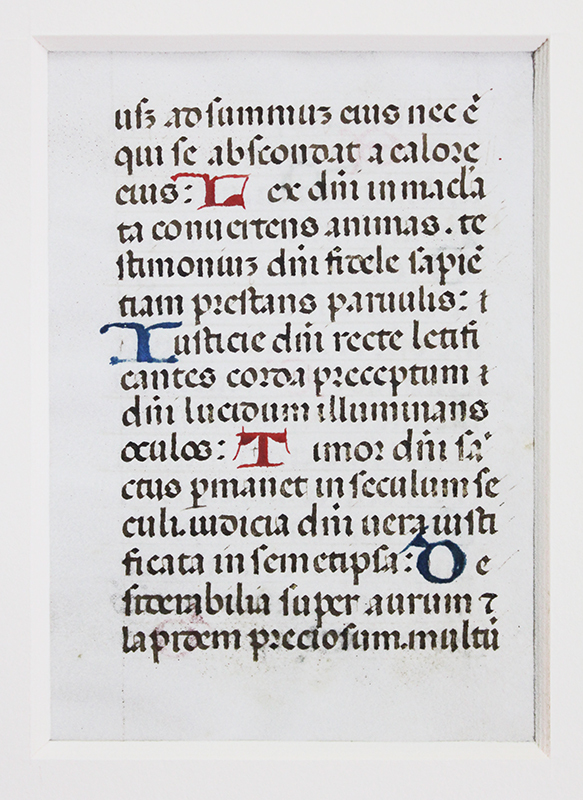 usꝫ ad summuꝫ eius nec ē
qui se abscondat a calore
eius: Lex dñi inmacla
ta conuertens animas. te
stimoniuꝫ dñi fidele sapiē
tiam prestans paruulis: ⁊
Iusticie dñi recte letifi
cantes corda preceptum ⁊
dñi lucidum illuminans
oculos: Timor dñi sā
ctus ꝑmanet in seculum se
culi. iudicia dñi uera iusti
ficata in semetipsa: De
siderabilia super aurum ⁊
lapidem preciosum. multū